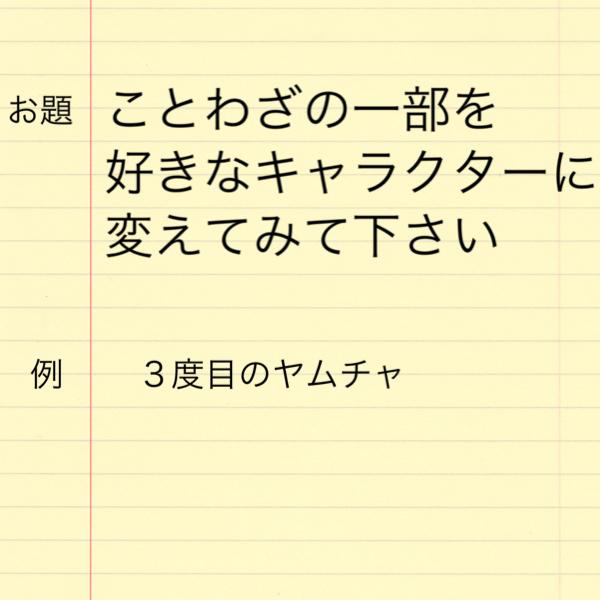 お題 ことわざの一部を
好きなキャラクターに
変えてみて下さい
例 3度目のヤムチャ